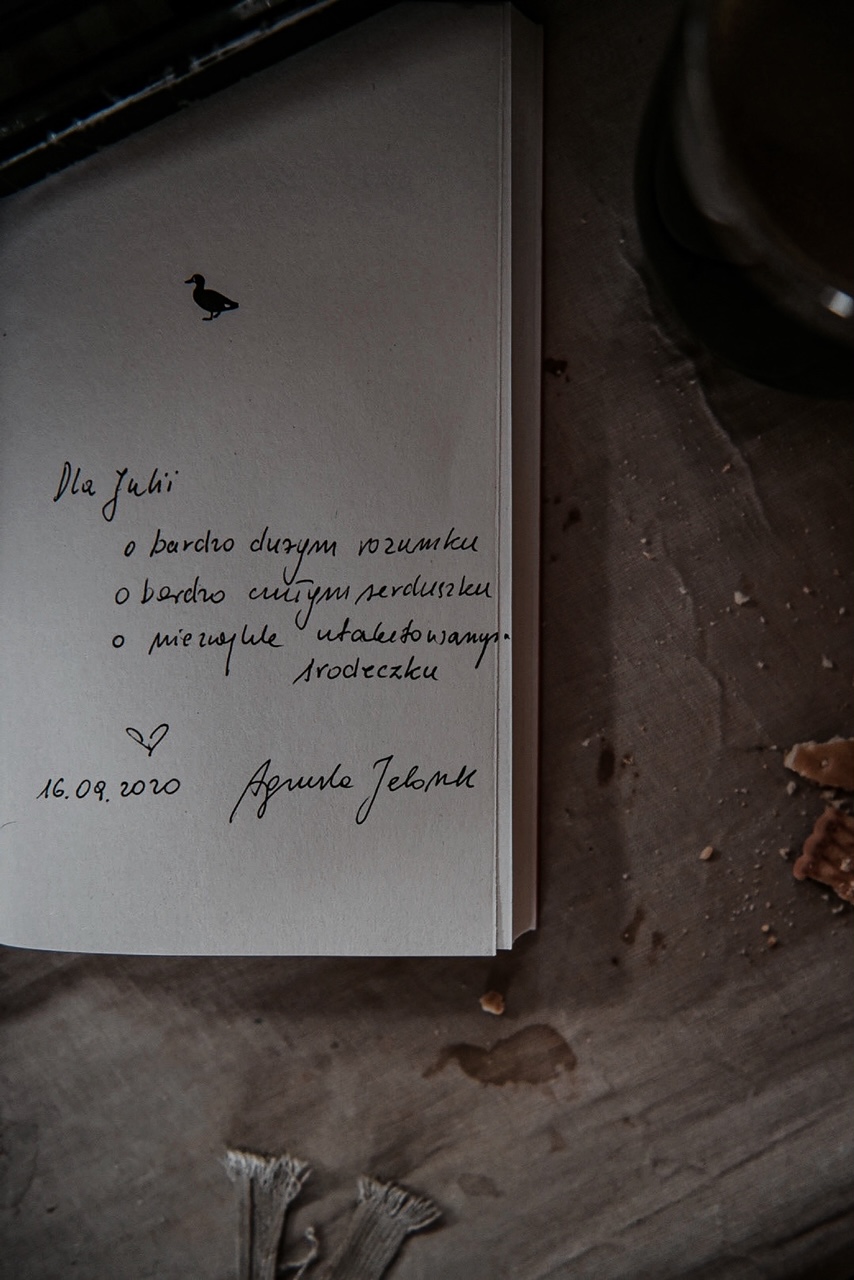 Dla Julii
o bardzo dużym rozumku
o bardzo czułym serduszku
o niezwykle utalentowanym
środeczku
16.09.2020 Agnieszka Jelonek